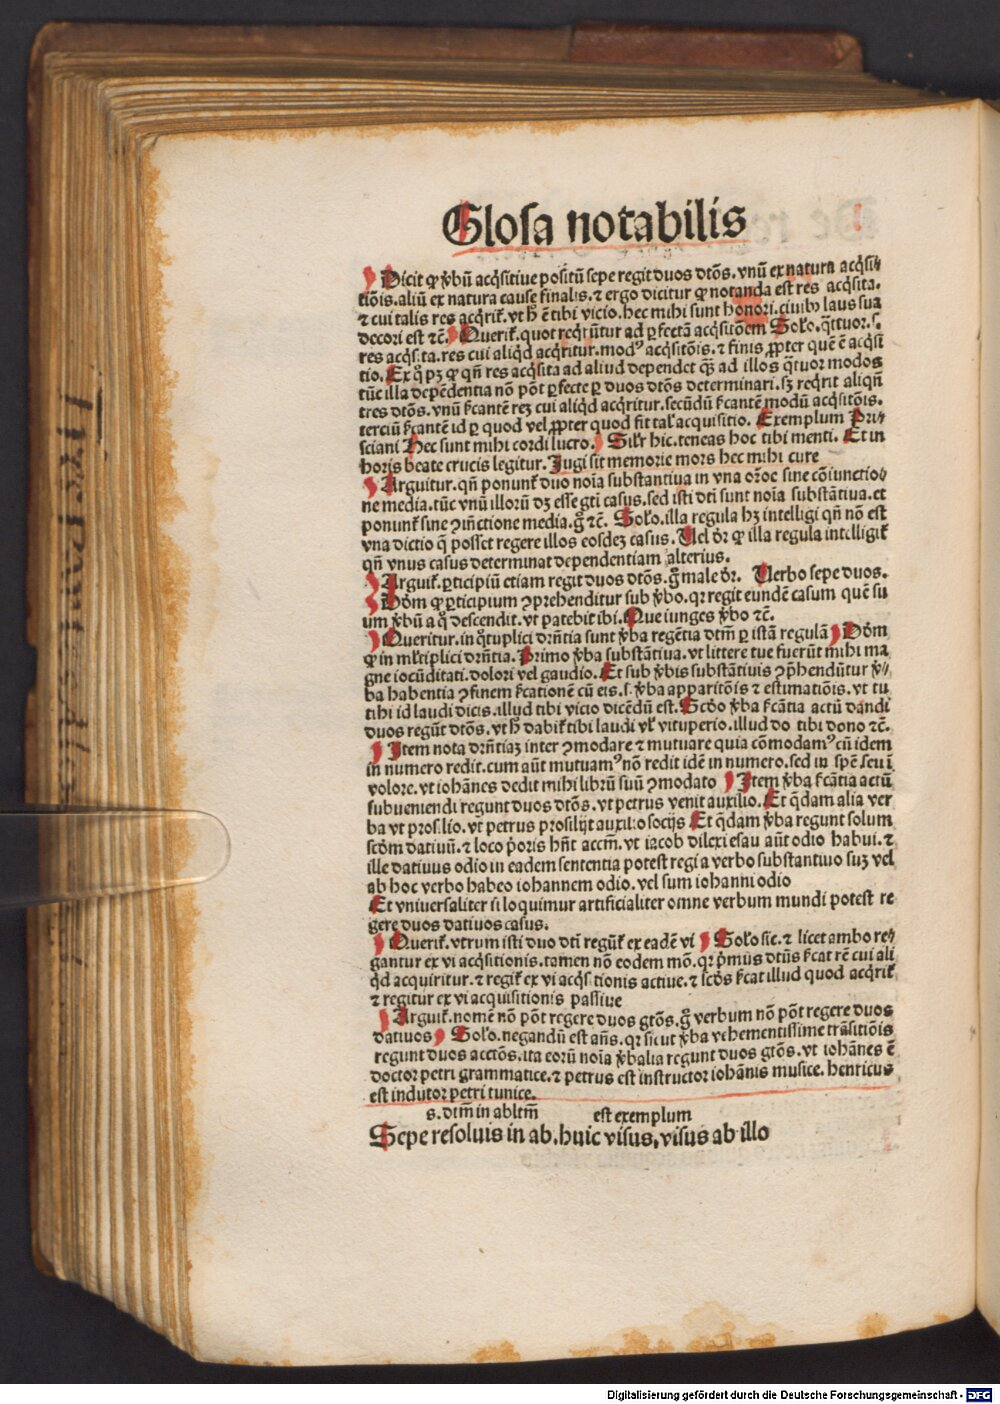 Glosa notabilis
Dicit ꝙ ꝟbū acq̄sitiue positū sepe regit duos dtōs. vnū ex natura acq̄si⸗
tiōis. aliū ex natura cause finalis. ⁊ ergo dicitur ꝙ notanda est res acq̄sita.
⁊ cui talis res acq̄rit̄. vt h̄ ē tibi vicio. hec mihi sunt honori. ciuibꝰ laus sua
decori est ⁊c̄. Querit̄. quot reqr̄ūtur ad ꝑfectā acq̄sitōem Solo. q̄ttuor. s.
res acq̄sita. res cui aliq̄d acq̄ritur. modꝰ acq̄sitōis. ⁊ finis ꝓpter quē ē acq̄si
tio. Ex q̊ pꝫ ꝙ qn̄ res acq̄sita ad aliud dependet q̄ꝫ ad illos q̄tuor modos
tūc illa depēdentia nō pōt ꝑfecte ꝑ duos dtōs determinari. sꝫ reqr̄it aliqn̄
tres dtōs. vnū s̄cantē reꝫ cui aliq̄d acq̄ritur. secūdū s̄cantē modū acq̄sitōis.
terciū s̄cantē id ꝑ quod vel ꝓpter quod fit tal̕ acquisitio. Exemplum Pri⸗
sciani Hec sunt mihi cordi lucro. Silr̄ hic. teneas hoc tibi menti. Et in
horis beate crucis legitur. Jugi sit memorie mors hec mihi cure
Arguitur. qn̄ ponunt̄ duo noīa substantiua in vna orōe sine cōiunctio⸗
ne media. tūc vnū illorū dꝫ esse gti casus. sed isti dti sunt noīa substātiua. et
ponunt̄ sine ꝯiūctione media. gͦ ⁊c̄. Solo. illa regula hꝫ intelligi qn̄ nō est
vna dictio q̄ posset regere illos eosdeꝫ casus. Uel dr̄ ꝙ illa regula intelligit̄
qn̄ vnus casus determinat dependentiam alterius.
Arguit̄. ꝑticipiū etiam regit duos dtōs. gͦ male dr̄. Uerbo sepe duos.
Dōm ꝙ ꝑticipium ꝯprehenditur sub ꝟbo. qr regit eundē casum quē su
um ꝟbū a q̊ descendit. vt patebit ibi. Que iunges ꝟbo ⁊c̄.
Queritur. in q̊tuplici dr̄ntia sunt ꝟba regētia dtm̄ ꝑ istā regulā Dōm
ꝙ in ml̕tiplici dr̄ntia. Primo ꝟba substātiua. vt littere tue fuerūt mihi ma
gne iocūditati. dolori vel gaudio. Et sub ꝟbis substātiuis ꝯp̄hendūtur ꝟ⸗
ba habentia ꝯfinem s̄cationē cū eis. s. ꝟba apparitōis ⁊ estimatiōis. vt tu
tibi id laudi dicis. illud tibi vicio dicēdū est. Scd̄o ꝟba s̄cātia actū dandi
duos regūt dtōs. vt h̄ dabit̄ tibi laudi vl̕ vituperio. illud do tibi dono ⁊c̄.
Item nota dr̄ntiaꝫ inter ꝯmodare ⁊ mutuare quia cōmodamꝰ cū idem
in numero redit. cum aūt mutuamꝰ nō redit idē in numero. sed in spē seu ī
valore. vt iohānes dedit mihi librū suū ꝯmodato Item ꝟba s̄cātia actū
subueniendi regunt duos dtōs. vt petrus venit auxilio. Et q̄dam alia ver
ba vt prosilio. vt petrus prosilijt auxilio socijs Et q̄dam ꝟba regunt solum
scd̄m datiuū. ⁊ loco p̄oris hn̄t accm̄. vt iacob dilexi esau aūt odio habui. ⁊
ille datiuus odio in eadem sententia potest regi a verbo substantiuo suꝫ vel
ab hoc verbo habeo iohannem odio. vel sum iohanni odio
Et vniuersaliter si loquimur artificialiter omne verbum mundi potest re
gere duos datiuos casus.
Querit̄. vtrum isti duo dti regūt̄ ex eadē vi Solo sic. ⁊ licet ambo re⸗
gantur ex vi acq̄sitionis. tamen nō eodem mō. qr p̄mus dtiūs s̄cat rē cui ali
q̄d acquiritur. ⁊ regit̄ ex vi acq̄sitionis actiue. ⁊ scd̄s s̄cat illud quod acq̄rit̄
⁊ regitur ex vi acquisitionis passiue
Arguit̄. nomē nō pōt regere duos gtōs. gͦ verbum nō pōt regere duos
datiuos Solo. negandū est ans̄. qr sicut ꝟba vehementissime trāsitiōis
regunt duos acctōs. ita eorū noīa ꝟbalia regunt duos gtōs. vt iohānes ē
doctor petri grammatice. ⁊ petrus est instructor iohānis musice. henricus
est indutor petri tunice.
s. dtm̄ in abltm̄ est exemplum
Sepe resoluis in ab. huic visus, visus ab illo
Digitalisierung gefördert durch die Deutsche Forschungsgemeinschaft - DFG